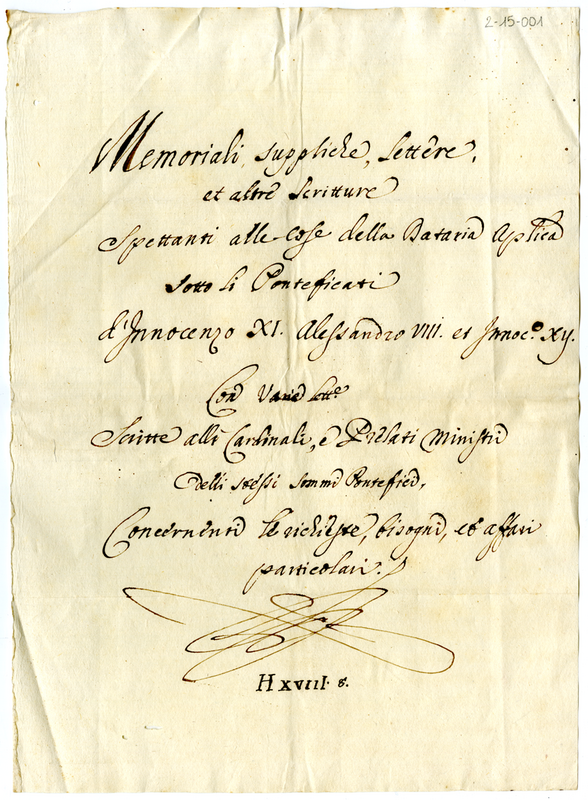 2-15-001
Memoriali, suppliche, lettere,
et altre scritture
Spettanti alle cose della Dataria Aplica
sotto li Ponteficati
d'Innocenzo XI. Alessandro VIII. et Innoc.o XII.
Con varie lett.e
Scritte alli Cardinali, e Prelati Ministri
delli stessi sommi Pontefici,
Concernenti le richieste, bisogni, et affari
particolari.
H XVIII. 8.